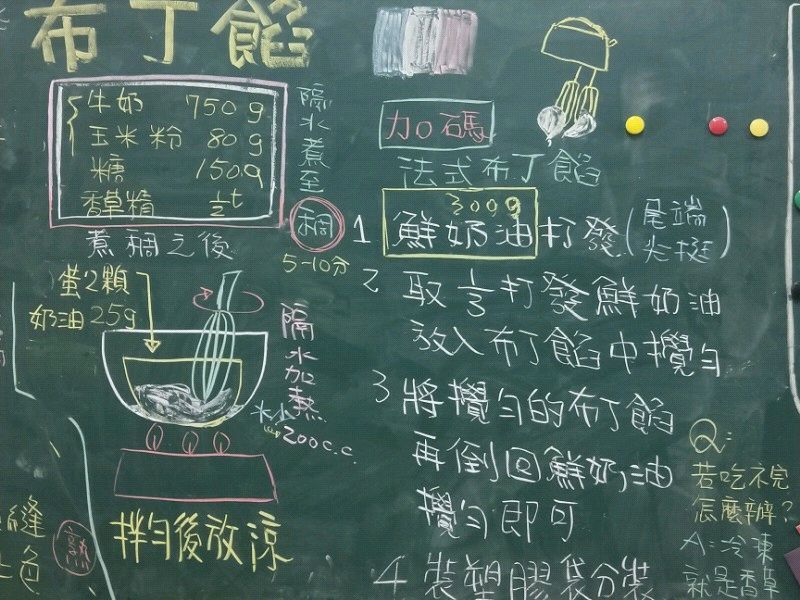 布丁餡
牛奶 750g
玉米粉 80g
糖 150g
香草精 ½t
隔水煮至
稠
5-10分
煮稠之後
蛋2顆
奶油25g
隔水加熱
水
200c.c.
拌勻後放涼
加碼
法式布丁餡
300g
1 鮮奶油打發(尾端尖挺)
2 取⅓打發鮮奶油
放入布丁餡中攪勻
3 將攪勻的布丁餡
再倒回鮮奶油
攪勻即可
4 裝塑膠袋分裝
Q:
若吃不完
怎麼辦?
A:冷凍
就是香草
縫
色